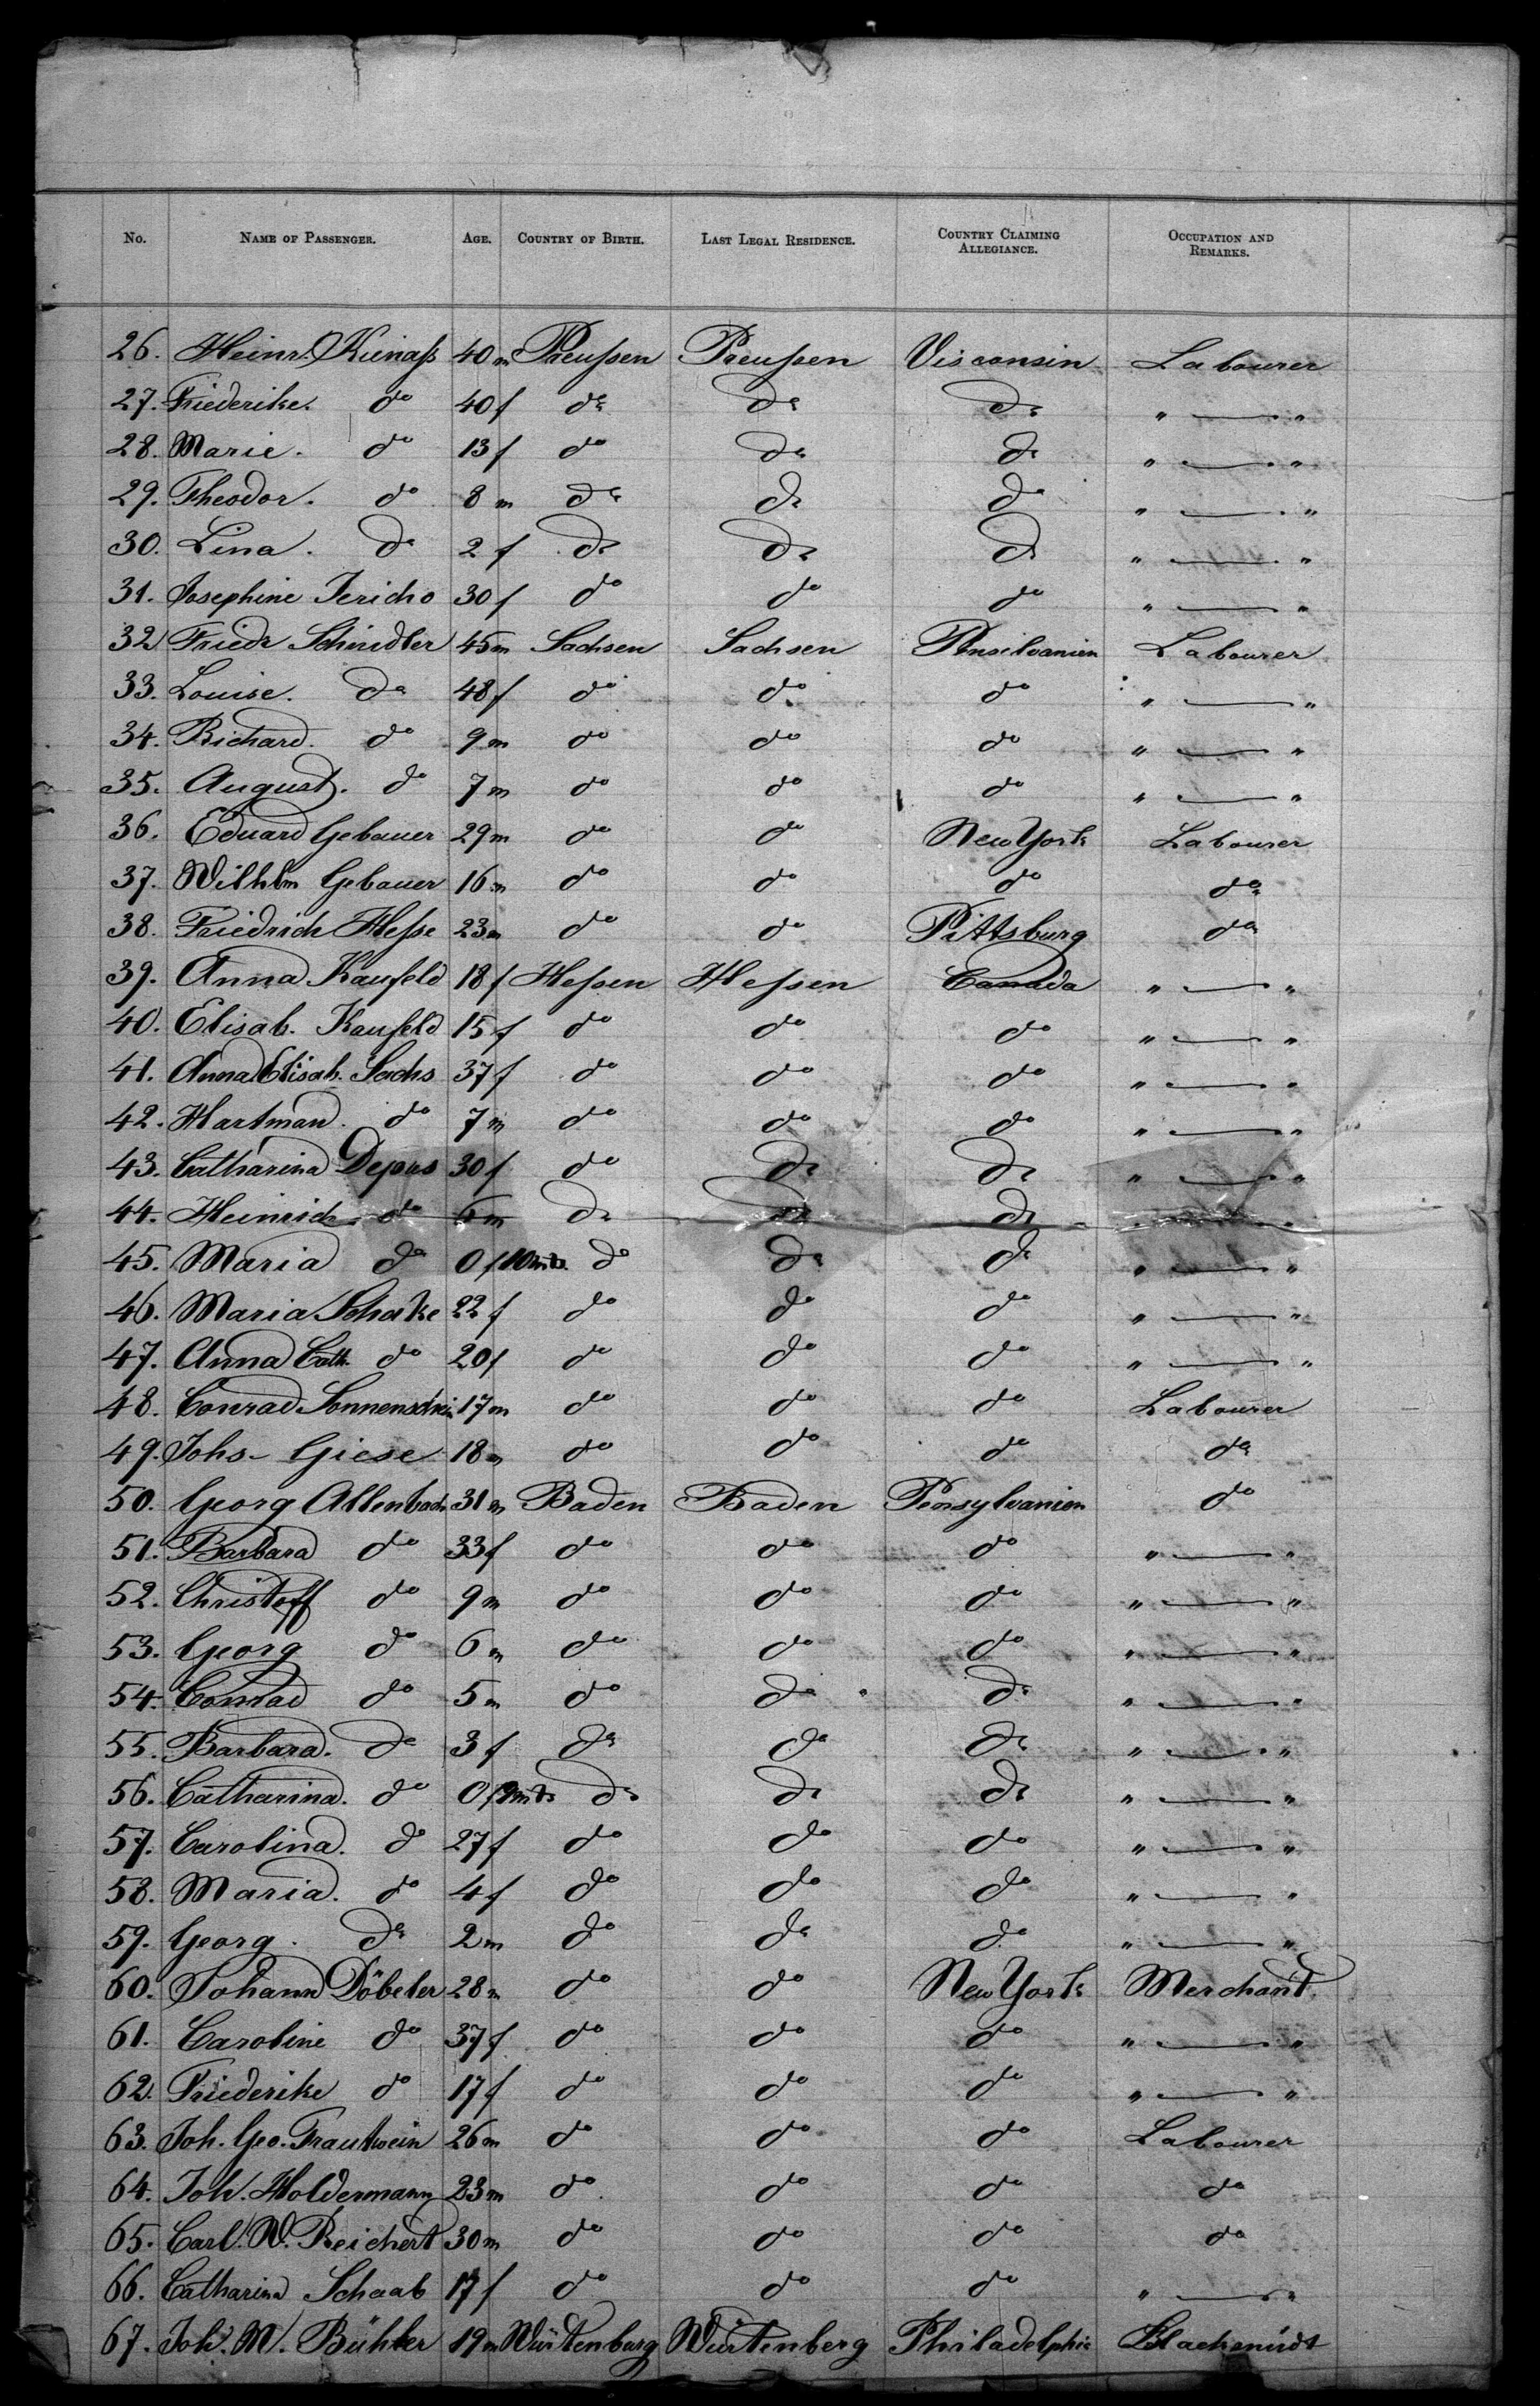 No. NAME OF PASSENGER. AGE. COUNTRY OF BIRTH. LAST LEGAL RESIDENCE. COUNTRY CLAIMING ALLEGIANCE. OCCUPATION AND REMARKS.
26. Heinr. Kunaſs 40 m Preuſsen Preuſsen Visconsin Labourer
27. Friederike. do 40 f do do do " — "
28. Marie. do 13 f do do do " — "
29. Theodor. do 8 m do do do " — "
30. Lina. do 2 f do do do " — "
31. Josephine Jericho 30 f do do do " — "
32 Friedr Schindler 45 m Sachsen Sachsen Pensilvanien Labourer
33. Louise. do 48 f do do do " — "
34. Richard. do 9 m do do do " — "
35. August. do 7 m do do do " — "
36. Eduard Gebauer 29 m do do New York Labourer
37. Wilhlm Gebauer 16 m do do do do
38. Friedrich Heſse 23 m do do Pittsburg do
39. Anna Kaufeld 18 f Heſsen Heſsen Canada " — "
40. Elisab. Kaufeld 15 f do do do " — "
41. Anna Elisab. Sachs 37 f do do do " — "
42. Hartman. do 7 m do do do " — "
43. Catharina Depus 30 f do do do " — "
44. Heinrich do 6 m do do do " — "
45. Maria do 0 f 10 mts. do do do " — "
46. Maria Schake 22 f do do do " — "
47. Anna Cath. do 20 f do do do " — "
48. Conrad Sonnenschein 17 m do do do Labourer
49. Johs- Giese 18 m do do do do
50. Georg Allenbach 31 m Baden Baden Pensylvanien do
51. Barbara do 33 f do do do " — "
52. Christoff do 9 m do do do " — "
53. Georg do 6 m do do do " — "
54. Conrad do 5 m do do do " — "
55. Barbara. do 3 f do do do " — "
56. Catharina. do 0 f 9 mts do do do " — "
57. Carolina. do 27 f do do do " — "
58. Maria. do 4 f do do do " — "
59. Georg. do 2 m do do do " — "
60. Johann Döbeler 28 m do do New York Merchant.
61. Caroline do 37 f do do do " — "
62. Friederike do 17 f do do do " — "
63. Joh. Geo. Trautwein 26 m do do do Labourer
64. Joh. Holdermann 23 m do do do do
65. Carl. W. Reichert 30 m do do do do
66. Catharina Schaab 17 f do do do " — "
67. Joh. M. Bühler 19 m Würtenburg Würtenberg Philadelphia